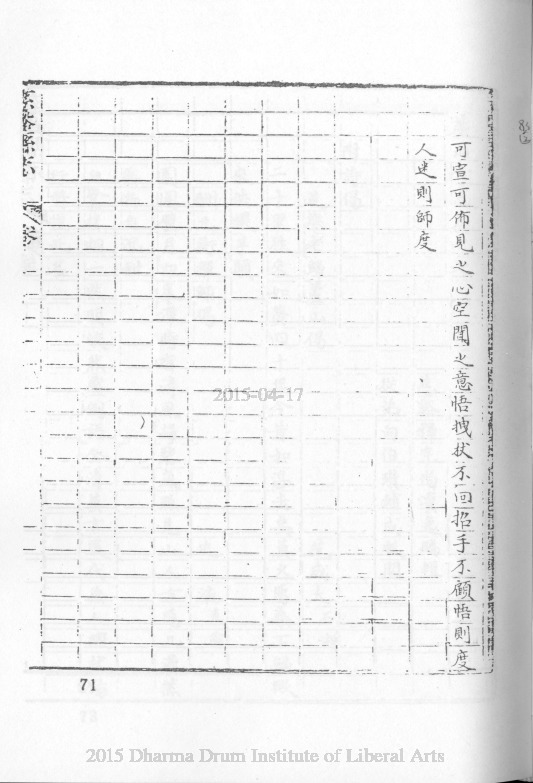 可宣可佈見之心空聞之意悟拽杖不回招手不顧悟則度
人迷則師度
慈谿縣志 卷
2015-04-17
71
2015 Dharma Drum Institute of Liberal Arts